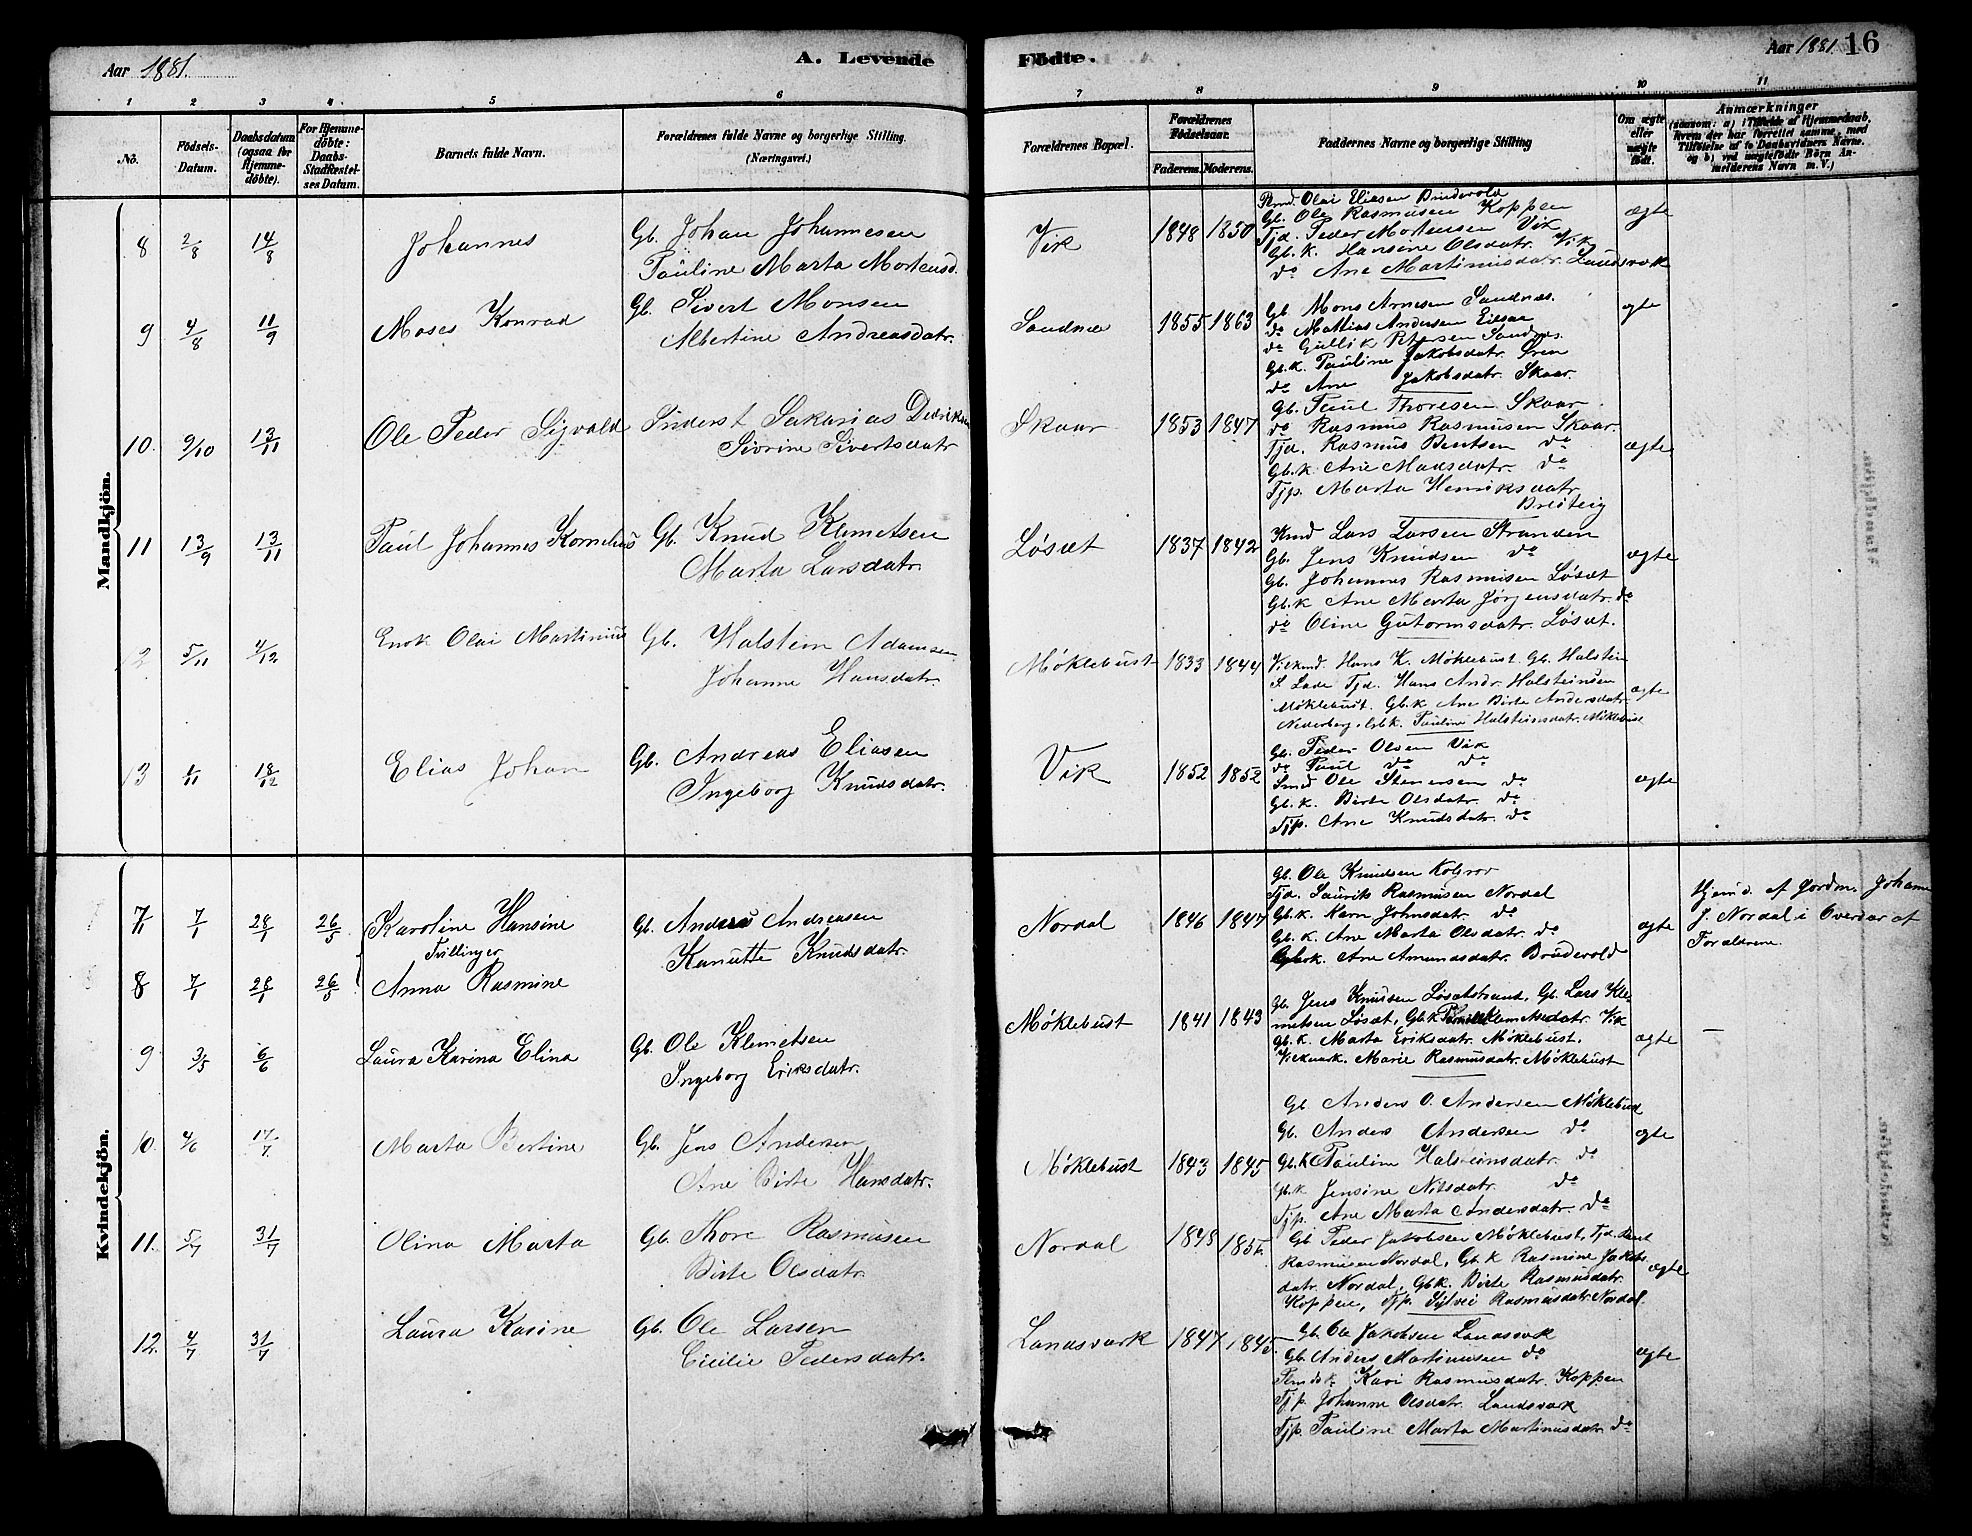 Aar 1881.
A. Levende
Födte.
Aar 1881. 16
1 2 3 4 5 6 7 8 9 10 11
No.
Födsels-Datum.
Daabsdatum (ogsaa for Hjemme-döbte).
For Hjemme-döbte: Daabs-Stadfæstel-ses Datum.
Barnets fulde Navn.
Forældrenes fulde Navne og borgerlige Stilling. (Næringsvei.)
Forældrenes Bopæl.
Forældrenes Födselsaar.
Faderens. Moderens.
Faddernes Navne og borgerlige Stilling
Om ægte eller uægte födt.
Anmærkninger
(saasom: a) i Tilfælde af Hjemmedaab, hvem der har forrettet samme, med Tilföielse af to Daabsvidners Navne. og b) ved uægtefödte Börn An-melderens Navn m. V.)
Mandkjön.
8 2/8 14/8 Johannes
Gb. Johan Johannesen
Pauline Marta Mortensd.
Vik 1848 1850
Olai Eliasen Brudevold
Gb. Ole Rasmusen Koppen
Tjd. Peder Mortensen Vik
Gb. k. Hansine Olsdatr. Vik
do Ane Martinusdatr. Landsværk
ægte
9 4/8 11/9 Moses Konrad
Gb. Sivert Monsen
Albertine Andreasdatr.
Sandnæs 1855 1863
Gb. Mons Arnesen Sandnæs.
do Mattias Andersen
do Gullik Petersen Sandnæs.
Gb. k. Pauline Jakobsdatr.
do Ane Jakobsdatr. Skaar.
ægte
10. 9/10 13/11 Ole Peder Sigvald
Inderst Sakarias
Sivrine Sivertsdatr
Skaar 1853 1847
Gb. Paul Thoresen Skaar
do Rasmus Rasmusen Skaar.
Tjd. Rasmus Bentsen do
Gb. k. Ane Madsdatr. do
Tjp. Marta Henriksdatr.
Breiteig
ægte
11 13/9 13/11 Paul Johannes Kornelius
Gb. Knud Klemetsen
Marta Larsdatr.
Løsæt 1837 1842
Lars Larsen Stranden
Gb. Jens Knudsen do
Gb. Johannes Rasmusen Løsæt
Gb. k Ane Marta Jørgensdatr. do
do Oline Gutormsdatr. Løsæt.
ægte
12 5/11 4/12 Enok Olai Martinius
Gb. Halstein Adamsen
Johanne Hansdatr.
Møklebust 1833 1844
Hans K. Møklebust. Gb. Halstein
S. Lade Tjd. Hans Andr. Halsteinsen
Møklebust. Gb. k Ane Birte Andersdatr.
Nederberg, Gb k. Pauline Halsteinsdatr. Møklebust
ægte
13 1/11 18/12 Elias Johan
Gb. Andreas Eliasen
Ingeborg Knudsdatr.
Vik 1852 1852
Gb. Peder Olsen Vik
do Paul do do
Smed Ole Steinersen do
Gb. k. Birte Olsdatr. do
Tjp. Ane Knudsdatr. do
ægte
Kvindekjön.
7 7/1 28/1 26/5 Karoline Hansine
Tvillinger
Gb. Anders Andreasen
Kanutte Knudsdatr.
Nordal 1846 1847
Gb. Ole Knudsen Kolgrov
Tjd. Laurits Rasmusen Nordal
Gb. k. Karn Johnsdatr. do
Gb. k. Ane Marta Olsdatr. do
Ane Amundsdatr. Brudevold
ægte
Hjemd. af Jordm. Johanne
J. Nordal i Overvær af
Forældrene.
8 7/1 28/1 26/5 Anna Rasmine
9 3/5 6/6 Laura Karina Elina
Gb. Ole Klemetsen
Ingeborg Eriksdatr.
Møklebust 1841 1843
Gb. Jens Knudsen Løsætstrand, Gb. Lars Kle-
metsen Løsæt, Gb. k. Klemetsdatr. Vik
Gb. k. Marta Eriksdatr. Møklebust.
Marie Rasmusdatr. Møklebust
ægte —
10. 4/6 17/7 Marta Bertine
Gb. Jens Andersen
Ane Birte Hansdatr.
Møklebust 1843 1845
Gb Anders O. Andersen Møklebust
Gb. Anders Andersen do
Gb. k Pauline Halsteinsdatr. do
Gb. k Jensine Nilsdatr. do
Tjp. Ane Marta Andersdatr. do
ægte
11. 5/7 31/7 Olina Marta
Gb. Thore Rasmusen
Birte Olsdatr.
Nordal 1848
Gb Peder Jakobsen Møklebust, Tjd.
Rasmusen Nordal, Gb. k Rasmine Jakobs
datr. Nordal, Gb k. Birte Rasmusdatr.
Koppen, Tjp. Sylvei Rasmusdatr. Nordal.
ægte
12. 4/7 31/7 Laura Kasine
Gb. Ole Larsen
Cicilie Pedersdatr.
Landsværk 1847 1845
Gb. Ole Jakobsen Landsværk
Gb. Anders Martinusen do
Kari Rasmusdatr. Koppen
Tjp. Johanne Olsdatr. Landsværk
Tjp. Pauline Marta Martinusdatr. do
ægte